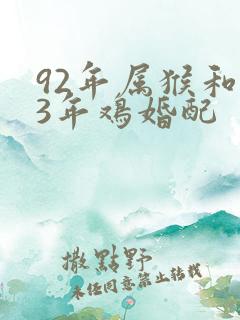 92年属猴和
3年鸡婚配
撒點野
未经同意禁止转载